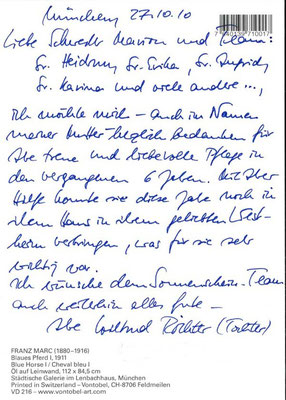 München 27.10.10
7 640139 710017
Liebe Schwester Marion und Team:
Sr. Heidrun, Sr. Erika, Sr. Ingrid,
Sr. Karina und viele andere...,
ich möchte mich – auch im Namen
meiner Mutter herzlich bedanken für
Ihre treue und liebevolle Pflege in
den vergangenen 6 Jahren. Mit Ihrer
Hilfe konnte sie diese Jahre noch in
ihrem Haus in ihrem geliebten
heim verbringen, was für sie sehr
wichtig war.
Ich wünsche dem Sonnenschein-Team
auch weiterhin alles Gute –
Ihre Richter (Tochter)
FRANZ MARC (1880–1916)
Blaues Pferd I, 1911
Blue Horse I / Cheval bleu I
Öl auf Leinwand, 112 x 84,5 cm
Städtische Galerie im Lenbachhaus, München
Printed in Switzerland – Vontobel, CH-8706 Feldmeilen
VD 216 – www.vontobel-art.com